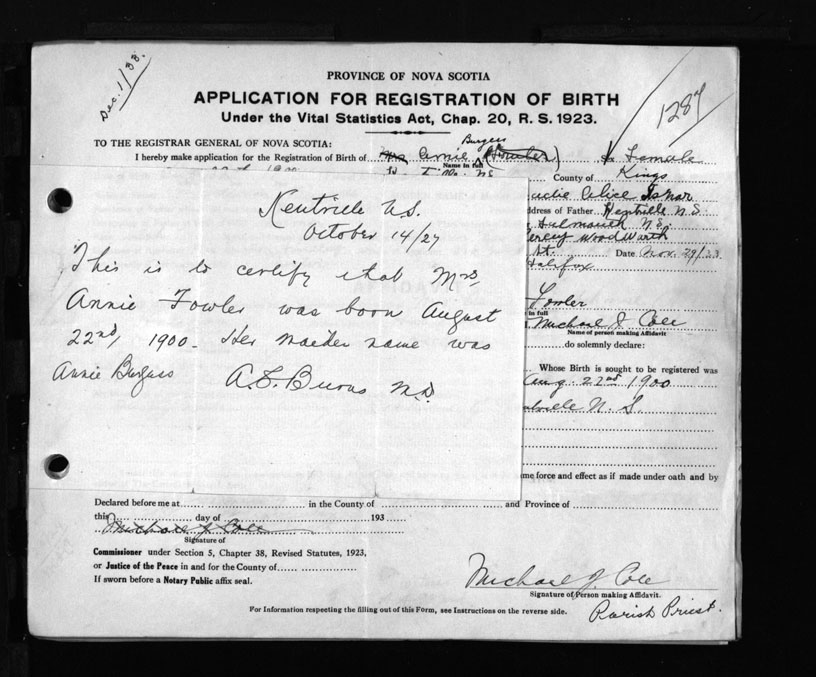 Dec. 1/33.
1287
PROVINCE OF NOVA SCOTIA
APPLICATION FOR REGISTRATION OF BIRTH
Under the Vital Statistics Act, Chap. 20, R. S. 1923.
TO THE REGISTRAR GENERAL OF NOVA SCOTIA:
Burgess
I hereby make application for the Registration of Birth of Mrs Annie (Fowler) Female
Name in full
County of Kings
Alice
ddress of Father Kentville N.S.
Falmouth N.S.
Woodworth
Date Nov. 29/33
Halifax
Fowler
in full
Michael J Cole
Name of person making Affidavit
do solemnly declare:
Whose Birth is sought to be registered was
Aug 22nd 1900
N. S.
me force and effect as if made under oath and by
Kentville N.S.
October 14/27
This is to certify that Mrs
Annie Fowler was born August
22nd, 1900. Her maiden name was
Annie Burgess
A. E. Burns M.D.
Declared before me at in the County of and Province of
this day of 193
Michael J Cole
Signature of
Commissioner under Section 5, Chapter 38, Revised Statutes, 1923,
or Justice of the Peace in and for the County of
If sworn before a Notary Public affix seal.
Michael J. Cole
Signature of Person making Affidavit.
Parish Priest.
For Information respecting the filling out of this Form, see Instructions on the reverse side.